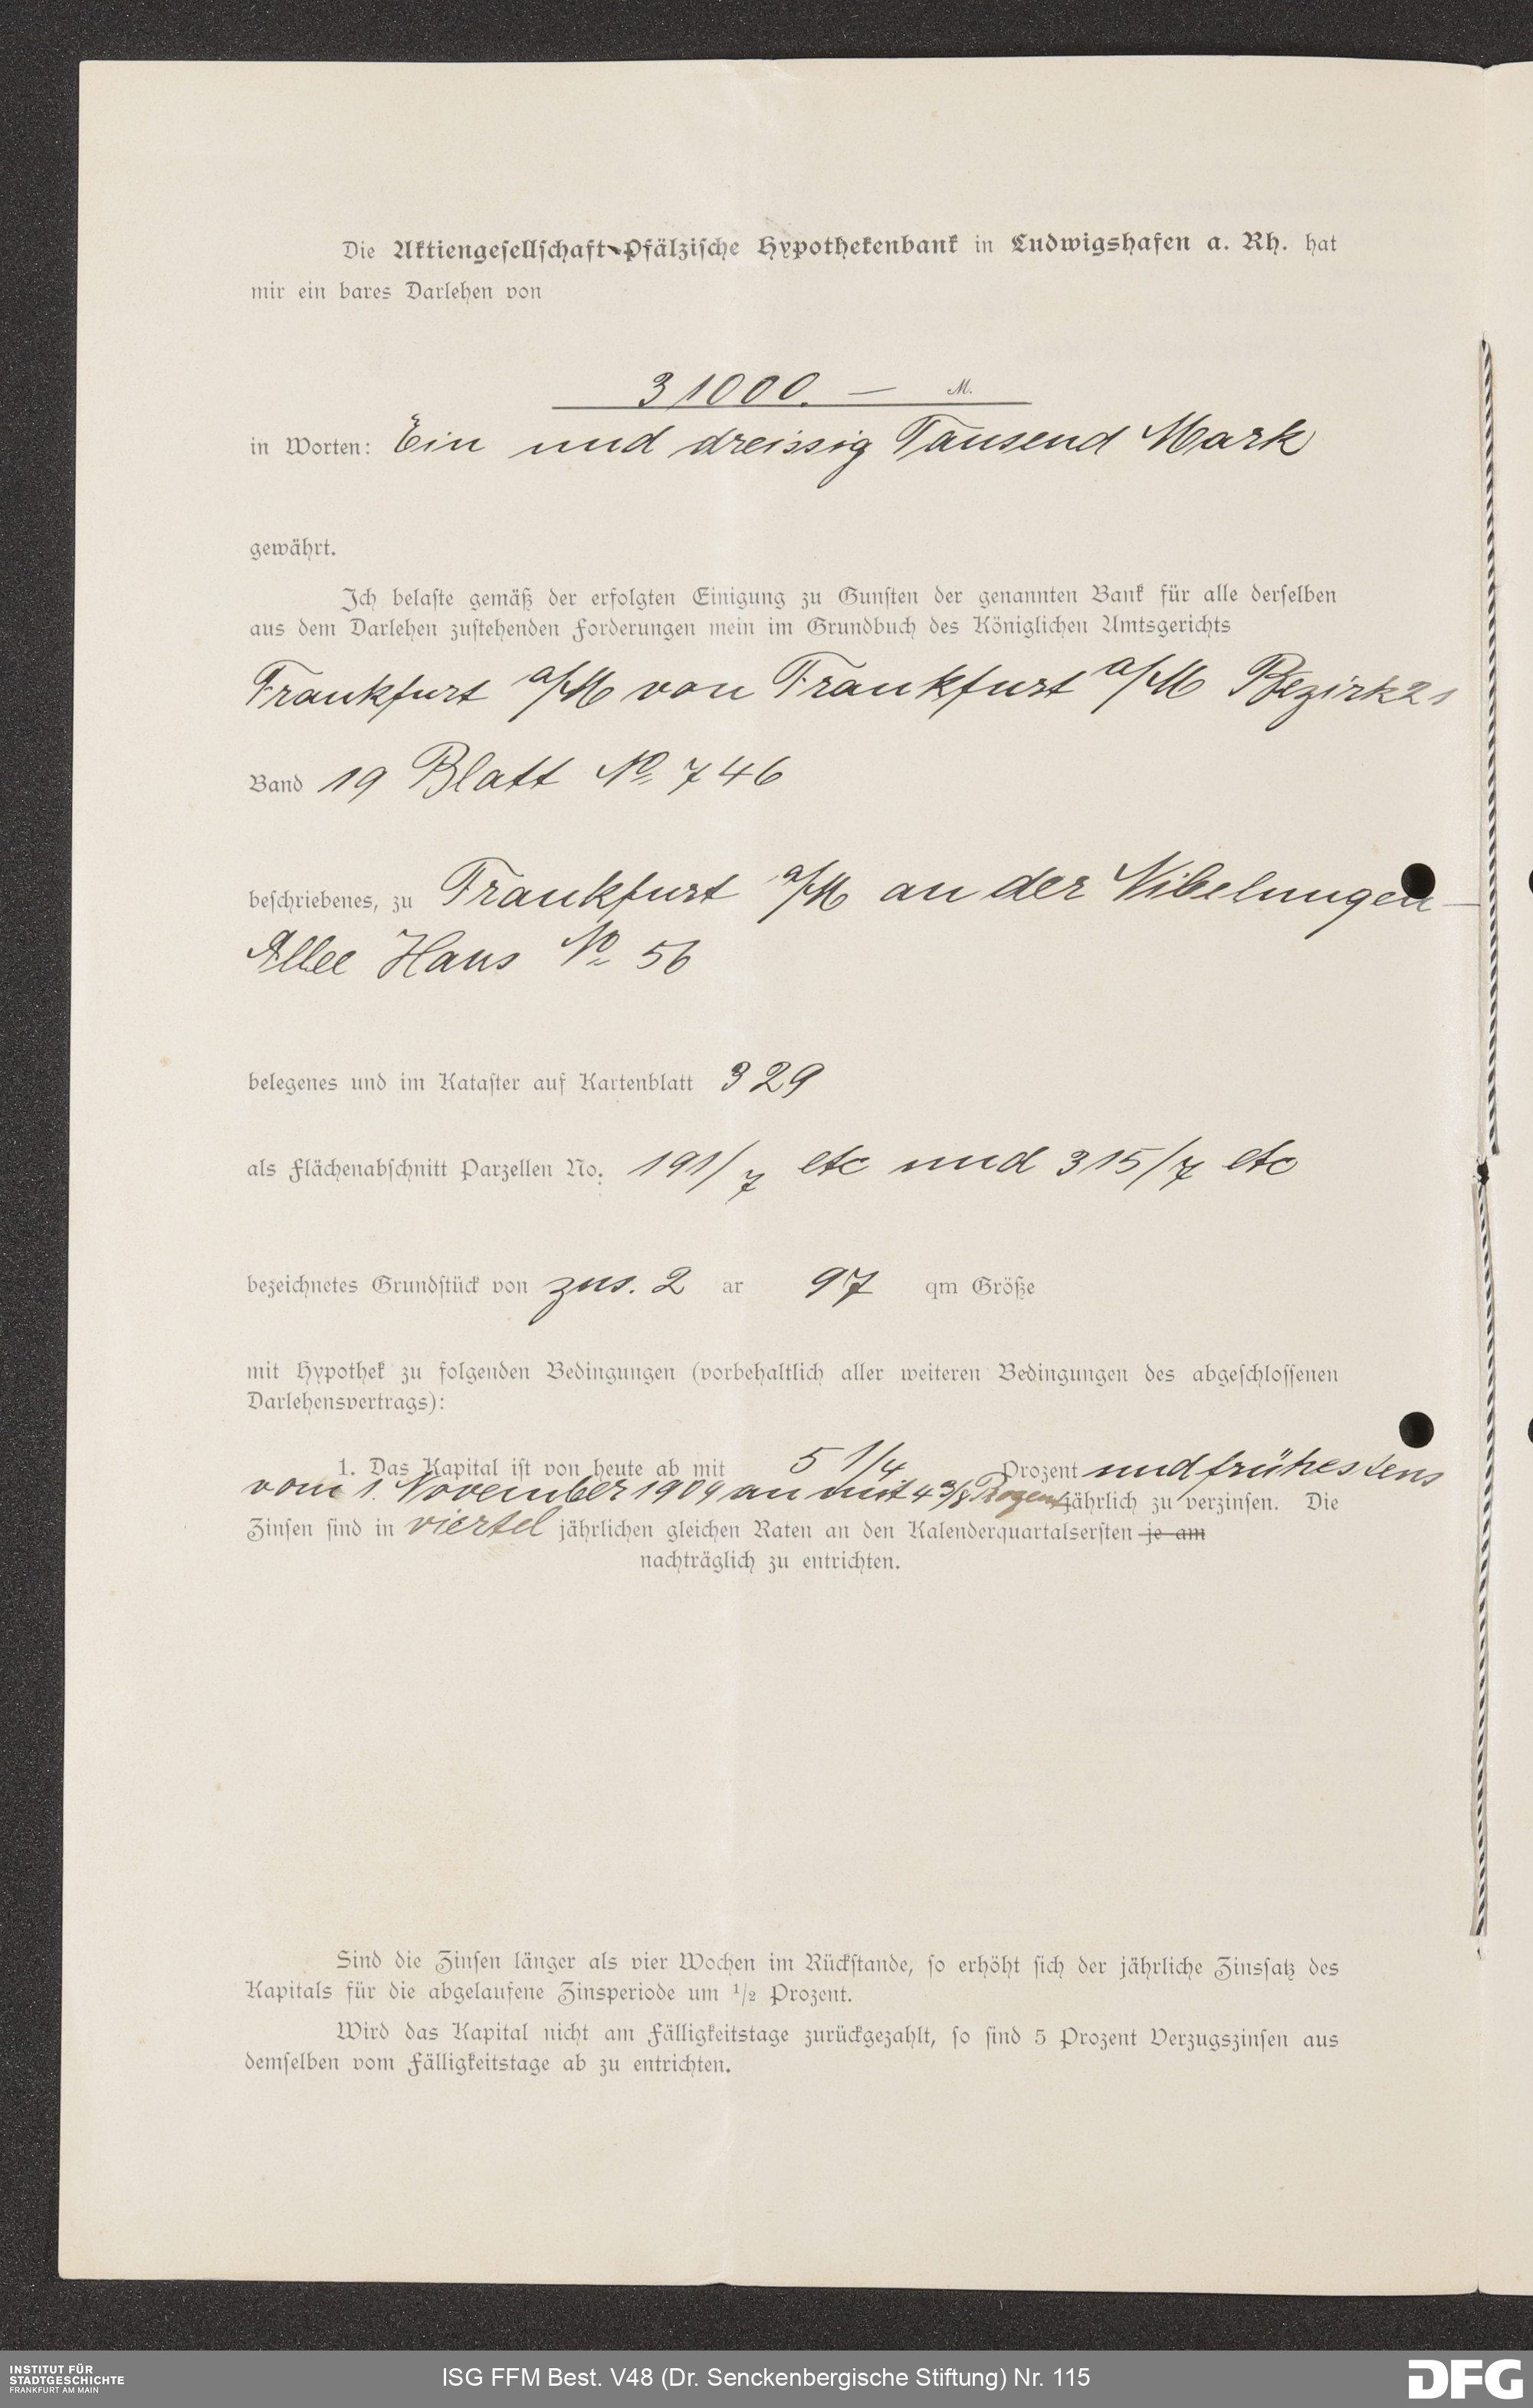 Die Aktiengesellschaft Pfälzische Hypothekenbank in Ludwigshafen a. Rh. hat
mir ein bares Darlehen von
31000. — M.
in Worten: Ein und dreissig Tausend Mark
gewährt.
Ich belaste gemäß der erfolgten Einigung zu Gunsten der genannten Bank für alle derselben
aus dem Darlehen zustehenden Forderungen mein im Grundbuch des Königlichen Amtsgerichts
Frankfurt a/M von Frankfurt a/M Bezirk 21
Band 19 Blatt No. 746
beschriebenes, zu Frankfurt a/M an der Nibelungen-
Allee Haus No. 56
belegenes und im Kataster auf Kartenblatt 329
als Flächenabschnitt Parzellen No. 191/7 etc und 315/7 etc
bezeichnetes Grundstück von zus. 2 ar 97 qm Größe
mit Hypothek zu folgenden Bedingungen (vorbehaltlich aller weiteren Bedingungen des abgeschlossenen
Darlehensvertrags):
1. Das Kapital ist von heute ab mit 5 1/4 Prozent und frühestens
vom 1. November 1909 an mit 4 3/8 Prozent jährlich zu verzinsen. Die
Zinsen sind in viertel jährlichen gleichen Raten an den Kalenderquartalsersten je am
nachträglich zu entrichten.
Sind die Zinsen länger als vier Wochen im Rückstande, so erhöht sich der jährliche Zinssatz des
Kapitals für die abgelaufene Zinsperiode um 1/2 Prozent.
Wird das Kapital nicht am Fälligkeitstage zurückgezahlt, so sind 5 Prozent Verzugszinsen aus
demselben vom Fälligkeitstage ab zu entrichten.
INSTITUT FÜR
STADTGESCHICHTE
FRANKFURT AM MAIN
ISG FFM Best. V48 (Dr. Senckenbergische Stiftung) Nr. 115
DFG